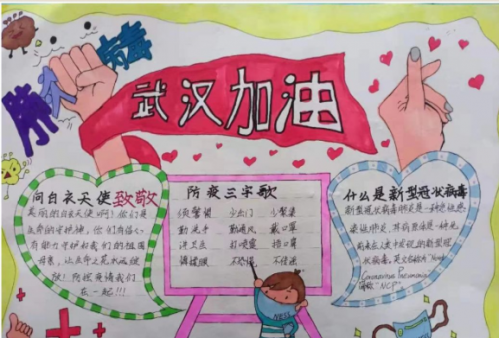 防 病毒
武汉加油
向白衣天使致敬
美丽的白衣天使啊！你们是
生命的守护神，你们有信心
有能力守护好我们的祖国
母亲，让生命之花永远绽
放！防控疫情我们
在一起！！！
防疫三字歌
保警惕 少出门 少聚集
勤洗手 勤通风 戴口罩
讲卫生 打喷嚏 捂口鼻
不恐慌 不传谣
什么是新型冠状病毒
新型冠状病毒肺炎是一种急性感
染性肺炎，其病原体是一种先
前未在人类中发现的新型冠
状病毒
"Novel
Coronavirus Pneumonia
简称"NCP"